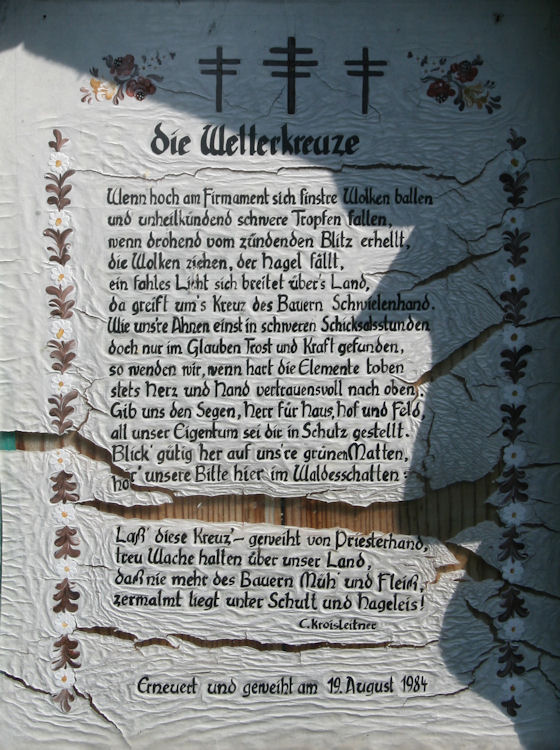 die Wetterkreuze
Wenn hoch am Firmament sich finstre Wolken ballen
und unheilkündend schwere Tropfen fallen,
wenn drohend vom zündenden Blitz erhellt,
die Wolken ziehen, der Hagel fällt,
ein fahles Licht sich breitet über's Land,
da greift um's Kreuz des Bauern Schwielenhand.
Wie uns're Ahnen einst in schweren Schicksalsstunden
doch nur im Glauben Trost und Kraft gefunden,
so wenden wir, wenn hart die Elemente toben
stets Herz und Hand vertrauensvoll nach oben,
Gib uns den Segen, Herr für Haus, Hof und Feld,
all unser Eigentum sei dir in Schutz gestellt.
Blick' gütig her auf uns're grünen Matten,
hör' unsere Bitte hier im Waldesschatten:
Laß' diese Kreuz'– geweiht von Priesterhand,
treu Wache halten über unser Land,
daß nie mehr des Bauern Müh' und Fleiß,
zermalmt liegt unter Schutt und Hageleis!
C. Kroisleitner
Erneuert und geweiht am 19. August 1984